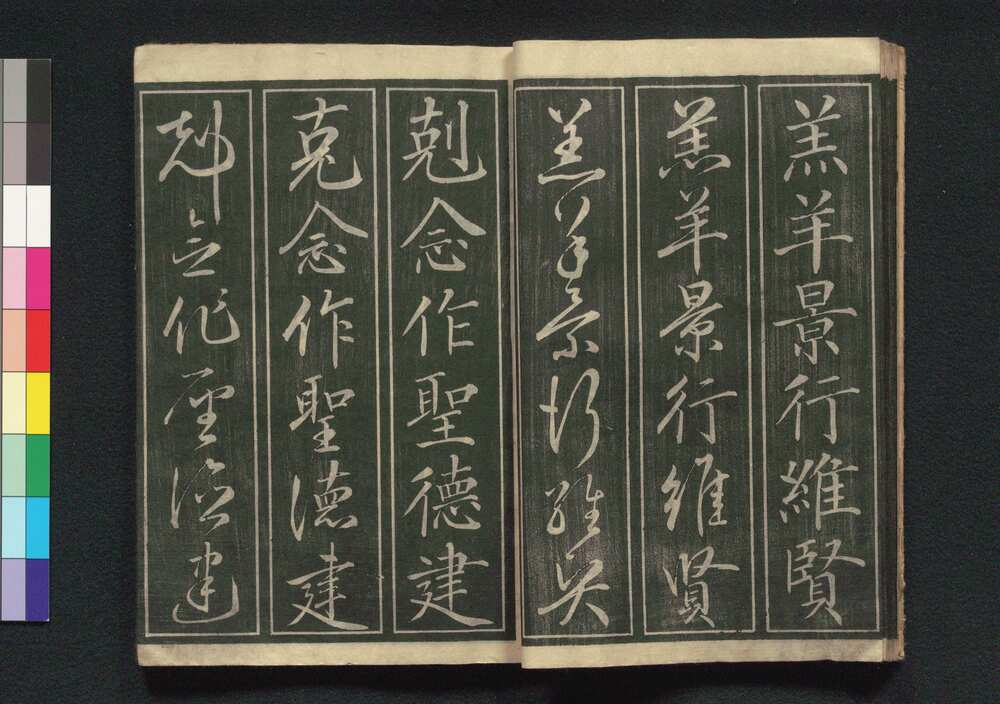 羔羊景行維賢
羔羊景行維賢
羔羊景行維賢
剋念作聖德建
克念作聖徳建
剋念作聖德建